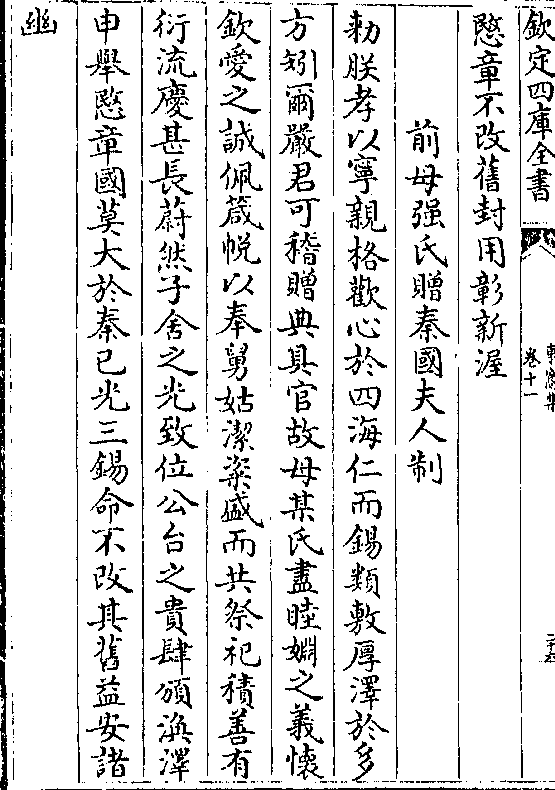 欽定四庫全書
卷十一
愍章不改舊封用彰新渥
前母强氏贈秦國夫人制
勑朕孝以寧親格歡心於四海仁而錫類敷厚澤於多
方矧爾嚴君可稽贈典具官故母某氏盡睦婣之義懷
欽愛之誠佩箴帨以奉舅姑潔粢盛而共祭祀積善有
衍流慶甚長蔚然子舍之光致位公台之貴肆頒渙澤
申舉愍章國莫大於秦已光三錫命不改其舊益安諸
幽